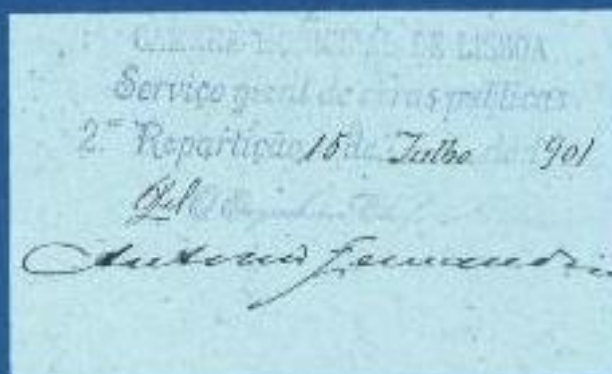 CAMARA MUNICIPAL DE LISBOA
Serviço geral de obras publicas
2.ª Repartição 15 de Julho de 901
Pel O Engenheiro Chefe
Antonio